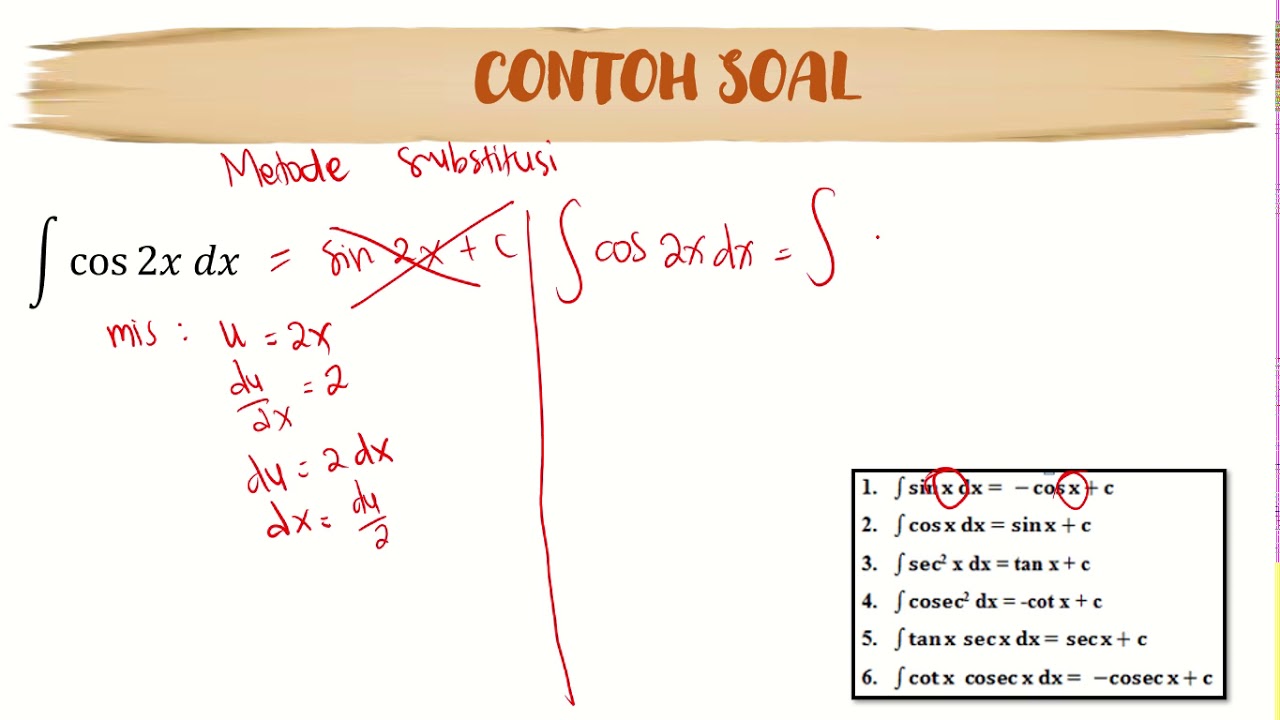 CONTOH SOAL
Metode substitusi
∫ cos 2x dx = sin 2x + c
mis : u = 2x
du/dx = 2
du = 2 dx
dx = du/2
∫ cos 2x dx = ∫
1. ∫ sin x dx = − cos x + c
2. ∫ cos x dx = sin x + c
3. ∫ sec² x dx = tan x + c
4. ∫ cosec² dx = -cot x + c
5. ∫ tan x sec x dx = sec x + c
6. ∫ cot x cosec x dx = −cosec x + c